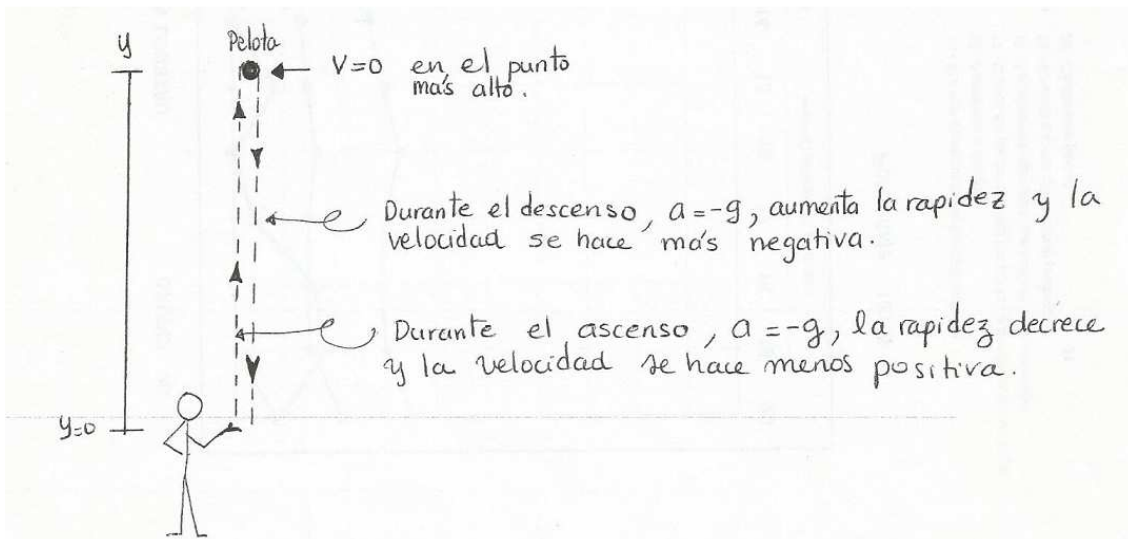 y
Pelota
V=0 en el punto
más alto.
Durante el descenso, a = -g, aumenta la rapidez y la
velocidad se hace más negativa.
Durante el ascenso, a = -g, la rapidez decrece
y la velocidad se hace menos positiva.
y=0